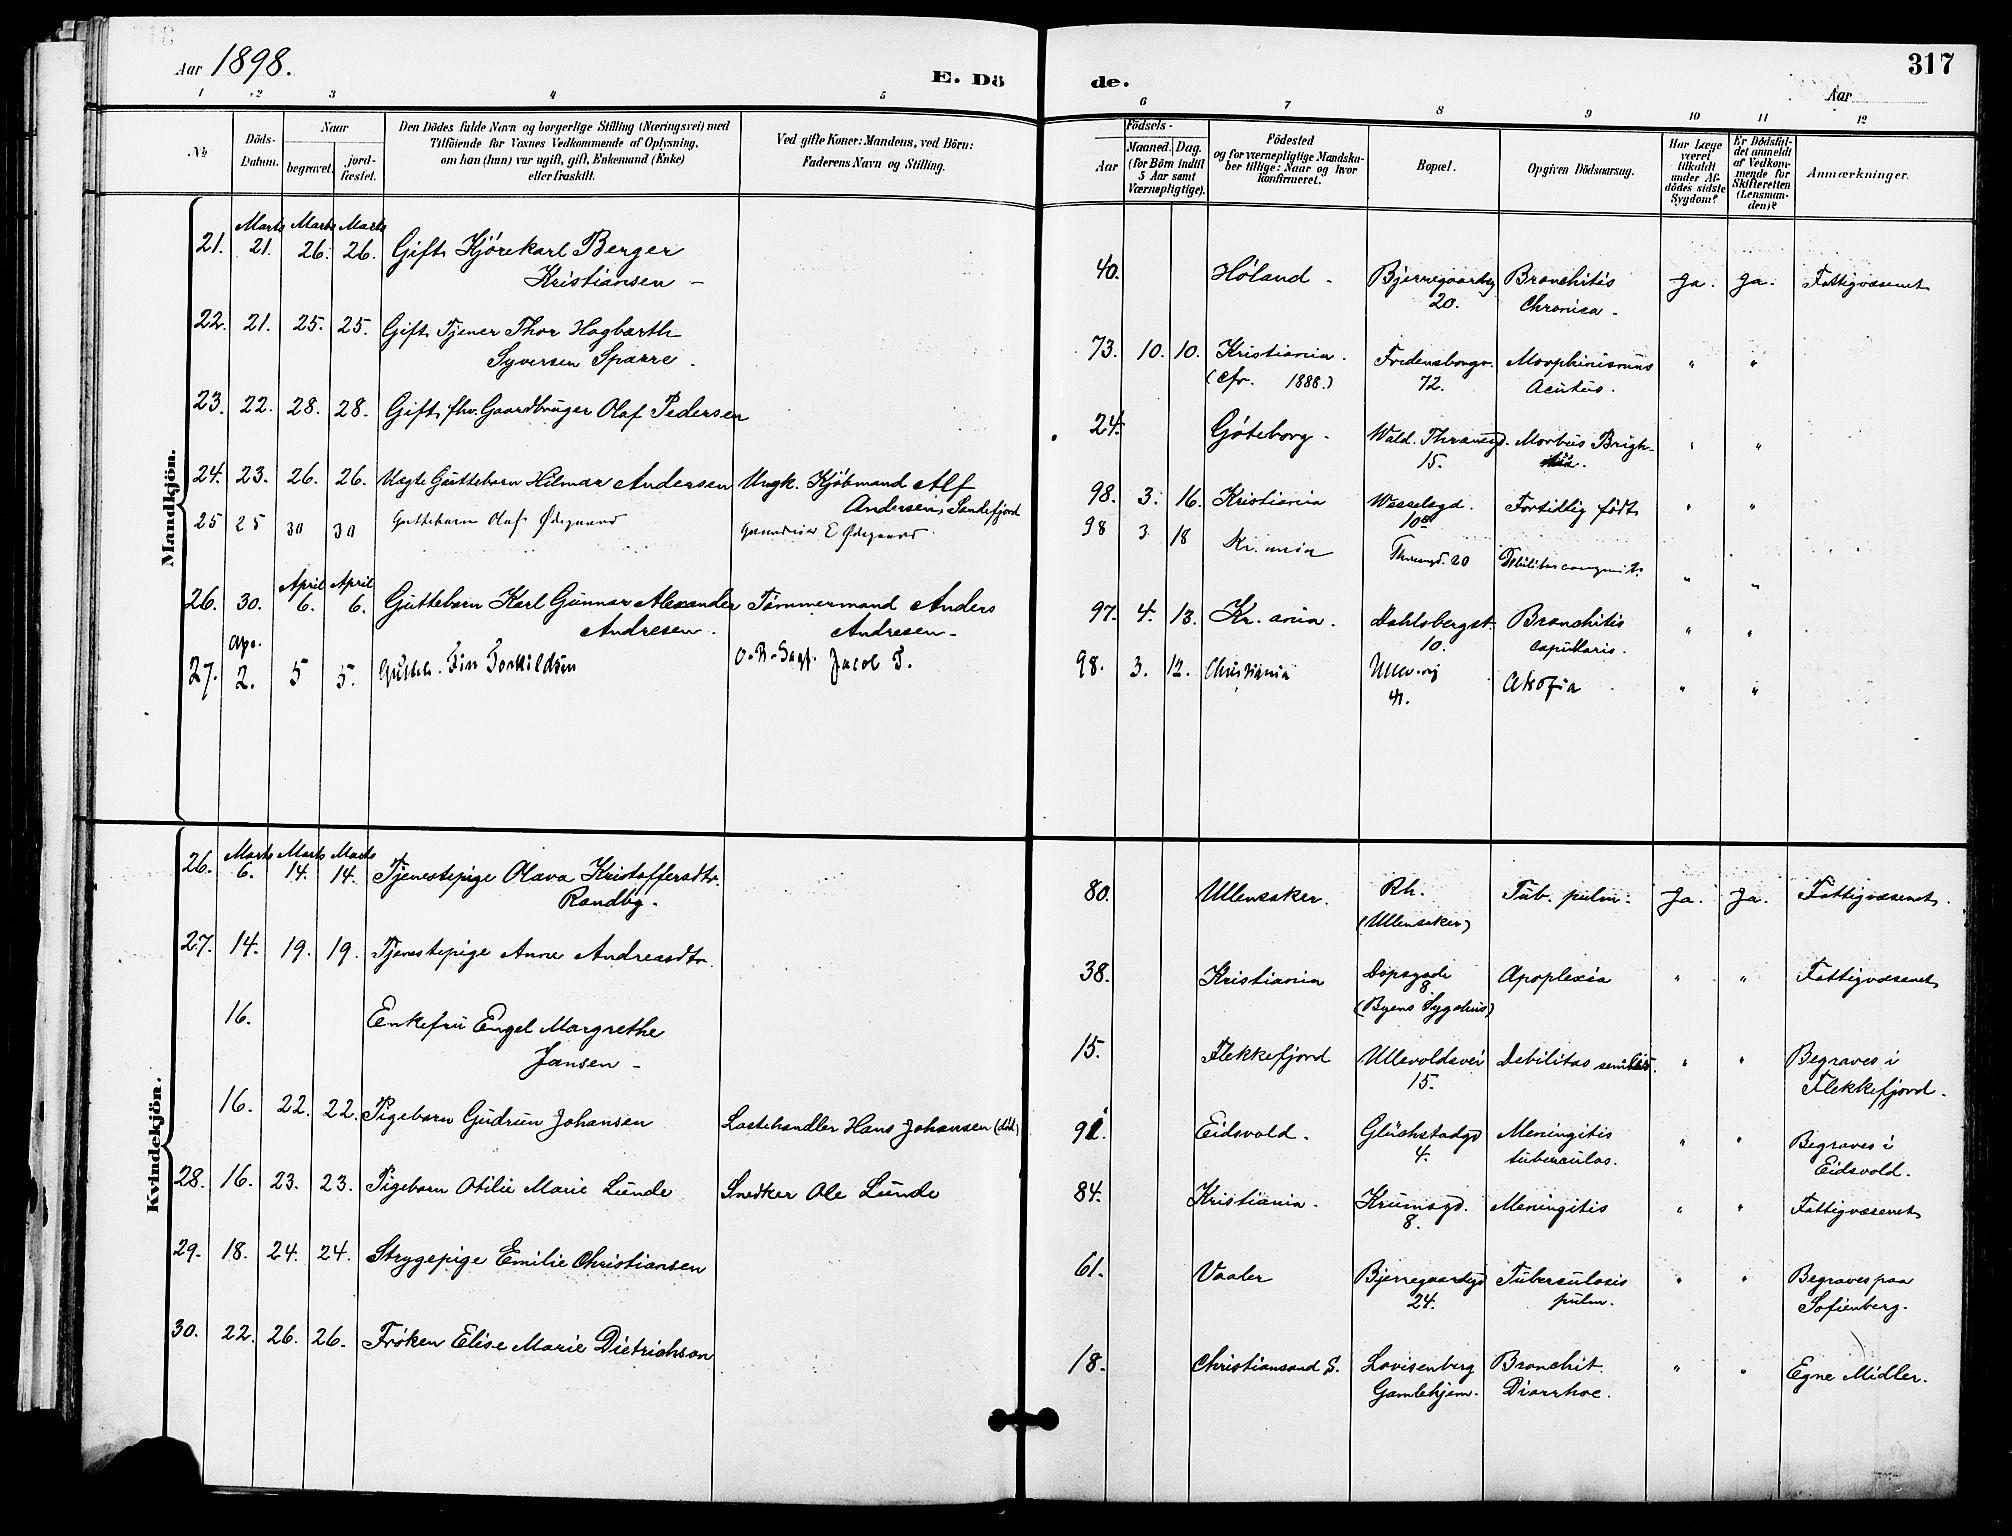 Aar 1898.
E. Dö
de.
317
Aar
1 2 3 4 5 6 7 8 9 10 11 12
No
Döds-Datum.
Naar
begravet.
jord-fæstet.
Den Dödes fulde Navn og borgerlige Stilling (Næringsvei) med
Tilföiende for Voxnes Vedkommende af Oplysning,
om han (hun) var ugift, gift, Enkemand (Enke)
eller fraskilt.
Ved gifte Koner: Mandens, ved Börn:
Faderens Navn og Stilling.
Födsels-
Aar
Maaned. Dag.
(for Börn indtil
5 Aar samt
Værnepligtige).
Födested
og for værnepligtige Mandska-
ber tillige: Naar og hvor
konfirmeret.
Bopæl.
Opgiven Dödsaarsag.
Har Læge
været
tilkaldt
under Af-
dödes sidste
Sygdom?
Er Dödsfal-
det anmeldt
af Vedkom-
mende for
Skifteretten
(Lensman-
den)?
Anmærkninger.
Mandkjön.
Marts Marts Marts
21. 21. 26. 26. Gift Kjörekarl Berger
Kristiansen –
40. Höland - Bjerregaardsg 20. Bronchitis Chronica. Ja. Ja. Fattigvæsenet
22. 21. 25. 25. Gift Tjener Thor Hagbarth
Syversen Sparre.
73. 10. 10. Kristiania. (cfr. 1888.) Fredensborgv. 72. Morphinismus Acutus. " "
23. 22. 28. 28. Gift fhv. Gaardbruger Olaf Pedersen
24. Göteborg - Wald. Thranesgd. 15. Morbus Brigh- " "
24. 23. 26. 26. Uægte Guttebarn Hilmar Andersen Ungk. Kjöbmand Alf
Andersen, Sandefjord
98. 3. 16. Kristiania Wesselsgd. Fortidlig födt " "
25 25 30 30 Guttebarn Olaf Ödegaard E Ödegaard
98 3 18 Kr. ania 20 " "
April April
26. 30. 6. 6. Guttebarn Karl Gunnar Alexander
Andresen. Tömmermand Anders
Andresen -
97. 4. 13. Kr. ania. Dahlsbergst. 10. Bronchitis capillaris. " "
Apr.
27. 2. 5 5. Jacob T.
98. 3. 12. Christiania Ullev.vej " "
Kvindekjön.
Marts Marts Marts
26. 6. 14. 14. Tjenestepige Olava Kristoffersdtr.
Randby.
80. Ullensaker. Rh. (Ullensaker) Tub. pulm. Ja. Ja. Fattigvæsenet.
27. 14. 19. 19. Tjenestepige Anne Andreasdtr.
38. Kristiania Dopsgade 8 (Byens Sygehus) Apoplexia " " Fattigvæsenet
16. Enkefru Engel Margrethe
Jansen –
15. Flekkefjord Ullevoldsvei 15. Debilitas senilis. " " Begraves i
Flekkefjord.
16. 22. 22. Pigebarn Gudrun Johansen Lastehandler Hans Johansen (död)
Eidsvold. Glückstadgd 4. Meningitis tuberculos. " " Begraves i
Eidsvold.
28. 16. 23. 23. Pigebarn Otilie Marie Lunde Snedker Ole Lunde
84. Kristiania. Krumsgd. 8. Meningitis " " Fattigvæsenet
29. 18. 24. 24. Strygepige Emilie Christiansen
61. Vaaler Bjerregaardsgd 24. Tuberculosis pulm. " " Begraves paa
Sofienberg.
30. 22. 26. 26. Fröken Elise Marie Dietrichson
18. Christiansand S. Lovisenberg Gamlehjem. Bronchit. Diarrhoe. " " Egne Midler.